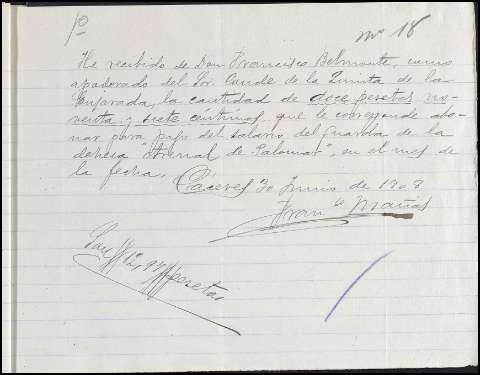 1º
nº 18
He recibido de Don Francisco Belmonte, como
apoderado del Sr. Conde de la Quinta de la
Enjarada, la cantidad de doce pesetas no-
venta y siete centimos, que le corresponde abo-
nar para pago del salario del Guarda de la
dehesa "Arenal de Palomar", en el mes de
la fecha.
Cáceres 30 Junio de 1908
Fran.co Mañas
Son #12,97# pesetas